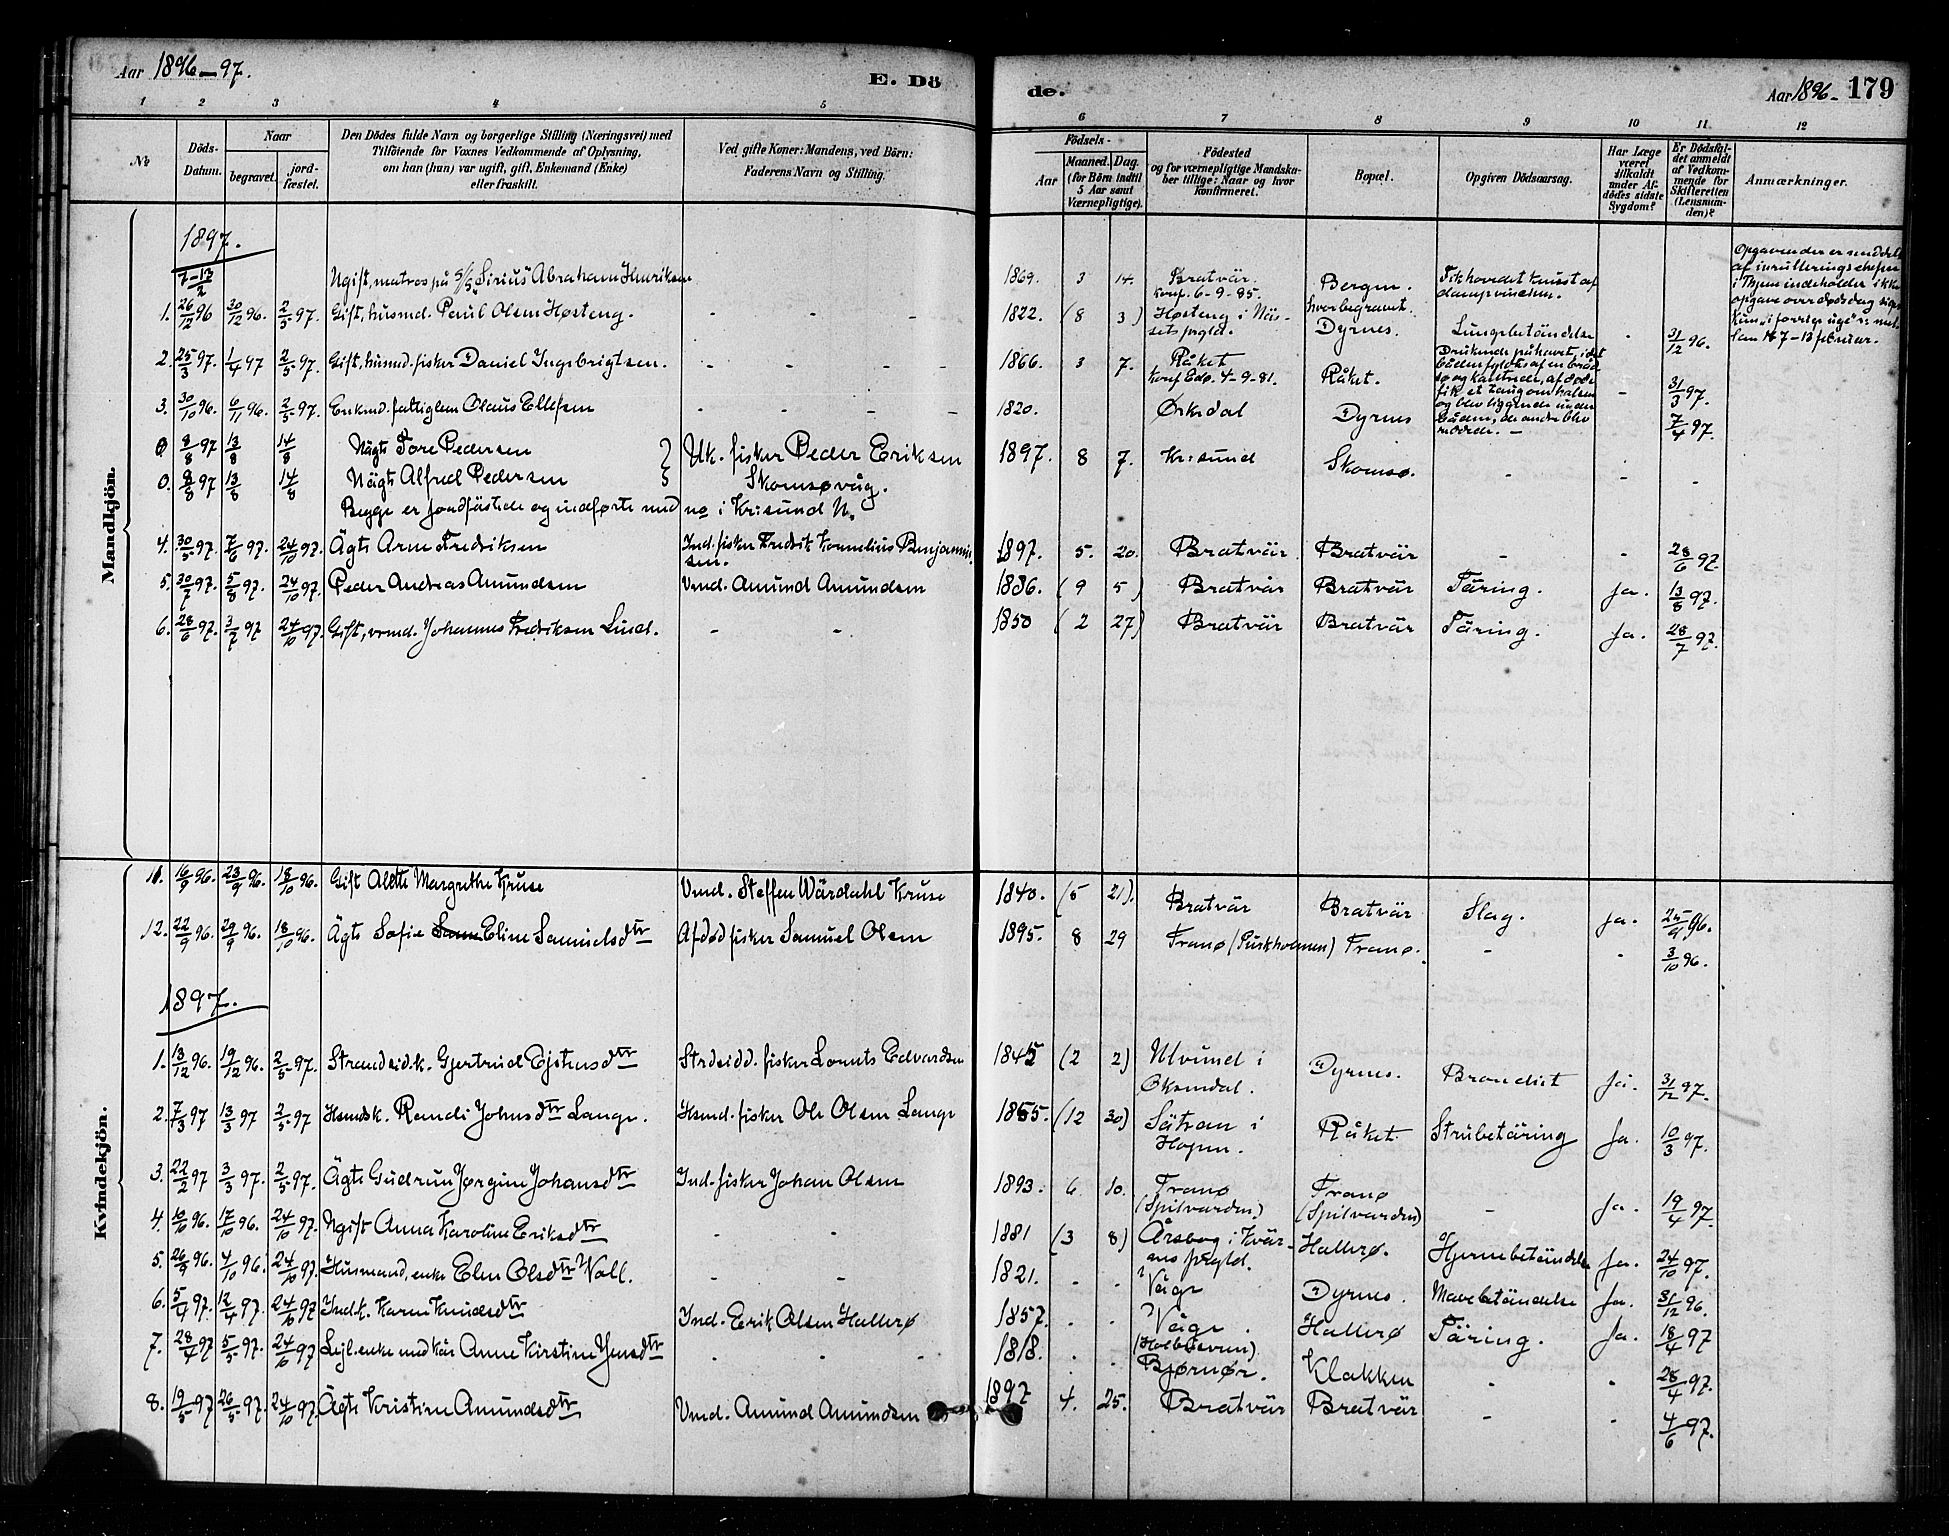 Aar 1896–97.
E. Dö
de.
Aar 1896– 179
1 2 3 4 5 6 7 8 9 10 11 12
No
Döds-Datum.
Naar
begravet.
jord-fæstet.
Den Dödes fulde Navn og borgerlige Stilling (Næringsvei) med
Tilföiende for Voxnes Vedkommende af Oplysning,
om han (hun) var ugift, gift, Enkemand (Enke)
eller fraskilt.
Ved gifte Koner: Mandens, ved Börn:
Faderens Navn og Stilling.
Födsels-
Aar
Maaned. Dag.
(for Börn indtil
5 Aar samt
Værnepligtige).
Födested
og for værnepligtige Mandska-
ber tillige: Naar og hvor
konfirmeret.
Bopæl.
Opgiven Dödsaarsag.
Har Læge
været
tilkaldt
under Af-
dödes sidste
Sygdom?
Er Dödsfal-
det anmeldt
af Vedkom-
mende for
Skifteretten
(Lensman-
den)?
Anmærkninger.
Mandkjön.
1897.
7–13/2 Ugift, matros på S/S "Sirius" Abraham Henriksen 1869. 3 14. Bratvär. konf. 6–9–85. Bergen. hvorbegravet. Fik hovedet knust af dampvinchen.
Opgaven der er meddelt
af inrulleringschefen
i Thjem indeholder ikke
opgave over dødsdag siger
kun "i forrige uge" o: mel-
lem 7–13 februar.
1. 26/12 96 30/12 96. 2/5 97. Gift, husmd. Poul Olsen Høsteng. - - - 1822. (8 3) Høsteng i Näs-
sets prgld. Dyrnes. Lungebetändelse - 31/12 96.
2. 25/3 97. 1/4 97 2/5 97. Gift, husmd. fisker Daniel Ingebrigtsen. - - - 1866. 3 7. Råket
konf Edø. 4–9–81. Råket. Druknede på havet, idet
båden fyldtes af en bråd-
sø og kantrede, afdøde
fik et taug om halsen
og blev liggende under
båden, de andre blev
reddede. - - 31/3 97.
3. 30/10 96. 6/11 96. 2/5 97. Enkmd. fattiglem Olaus Ellefsen - - - 1820. Orkedal Dyrnes 7/4 97.
0 8/8 97 13/8 14/8 Uägte Tore Pedersen } Uk. fisker Peder Eriksen 1897. 8 7. Kr:sund Skomsø. - - -
0. 8/8 97 13/8 14/8 Uägte Alfred Pedersen } Skomsøvåg.
Begge er jordfästede og indførte med no i Kr:sund N.
4. 30/5 97. 7/6 97. 24/10 97. Ägte Arne Fredriksen Ind. fisker Fredrik Kornelius Benjamin-
sen. 1897. 5. 20. Bratvär Bratvär - - 28/6 97.
5. 30/7 97. 5/8 97. 24/10 97. Peder Andreas Amundsen Vmd. Amund Amundsen 1886. (9 5) Bratvär Bratvär Täring. Ja. 13/8 97.
6. 28/6 97. 3/7 97 24/10 97. Gift, vrmd. Johannes Fredriksen Lund. - - 1850 (2 27) Bratvär Bratvär Täring. Ja. 28/7 97.
Kvindekjön.
11. 16/9 96. 23/9 96. 18/10 96. Gift Alette Margrethe Kruse Vmd. Steffen Wärdahl Kruse 1840. (5 21). Bratvär Bratvär Slag. Ja. 25/9 96.
12. 22/9 96. 29/9 96. 18/10 96. Ägte Sofie Eline Samuelsdtr Afdød fisker Samuel Olsen 1895. 8 29 Tranø (Purkholmen) Tranø. - - 3/10 96.
1897.
1. 13/12 96. 19/12 96. 2/5 97. Strandsid.k. Gjertrud Ejstensdtr Strdsidd. fisker Lornts Edvardsen 1845 (2 2) Ulvund i
Øksendal. Dyrnes. Brandist Ja. 31/12 97.
2. 7/3 97 13/3 97 2/5 97. Hsmdsk. Randi Johnsdtr Lange. Hsmd. fisker Ole Olsen Lange 1865. (12 30) Sätran i
Hopen. Råket. Strubetäring Ja. 10/3 97.
3. 22/2 97 3/3 97. 2/5 97. Ägte Gudrun Jørgine Johansdtr Ind. fisker Johan Olsen 1893. 6. 10. Tranø
(Spilvarden) Tranø
(Spilvarden) - Ja. 19/4 97.
4. 10/10 96. 17/10 96. 24/10 97. Ugift Anna Karoline Eriksdtr - - 1881 (3 8) Årsbog i Kvär-
nes prgld. Hallerø. Hjernebetändelse Ja. 24/10 97.
5. 26/9 96. 4/10 96. 24/10 97. Husmand, enke Elen Olsdtr Woll. - - 1821. - - Våge Dyrnes. Mavebetändelse Ja. 31/12 96.
6. 5/4 97. 12/4 97. 24/10 97 Indk. Karen Knudsdtr Ind. Erik Olsen Hallerø 1857. - - Våge. Hallerø Täring. Ja. 18/4 97
7. 28/4 97 5/5 97. 24/10 97 Lejl. enke med kår Anne Kirstine Jensdtr - - - 1818. - -
Bjørnør. Klakken - - 28/4 97.
8. 19/5 97 26/5 97. 24/10 97. Ägte Kristine Amundsdtr Vmd. Amund Amundsen 1897 4. 25. Bratvär Bratvär - - 4/6 97.